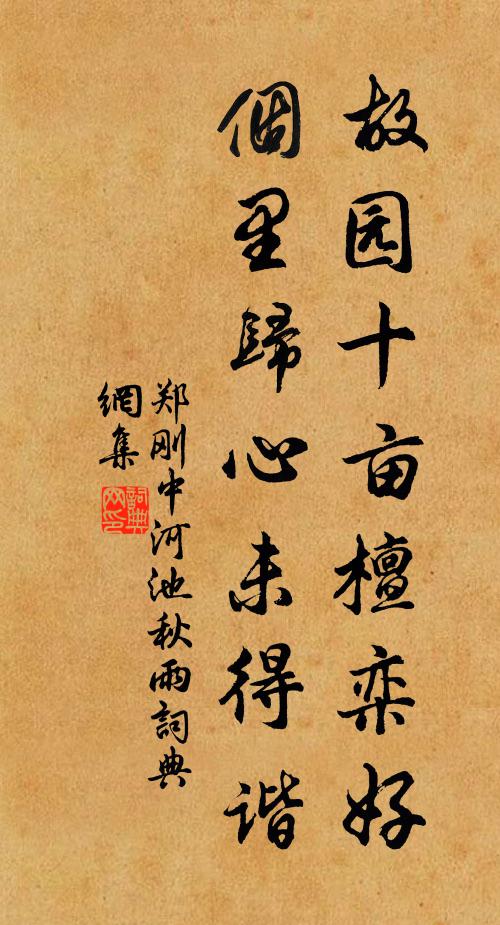 故园十亩檀栾好
個里歸心未得谐
郑刚中河池秋雨詞典
網集
詞典
网印